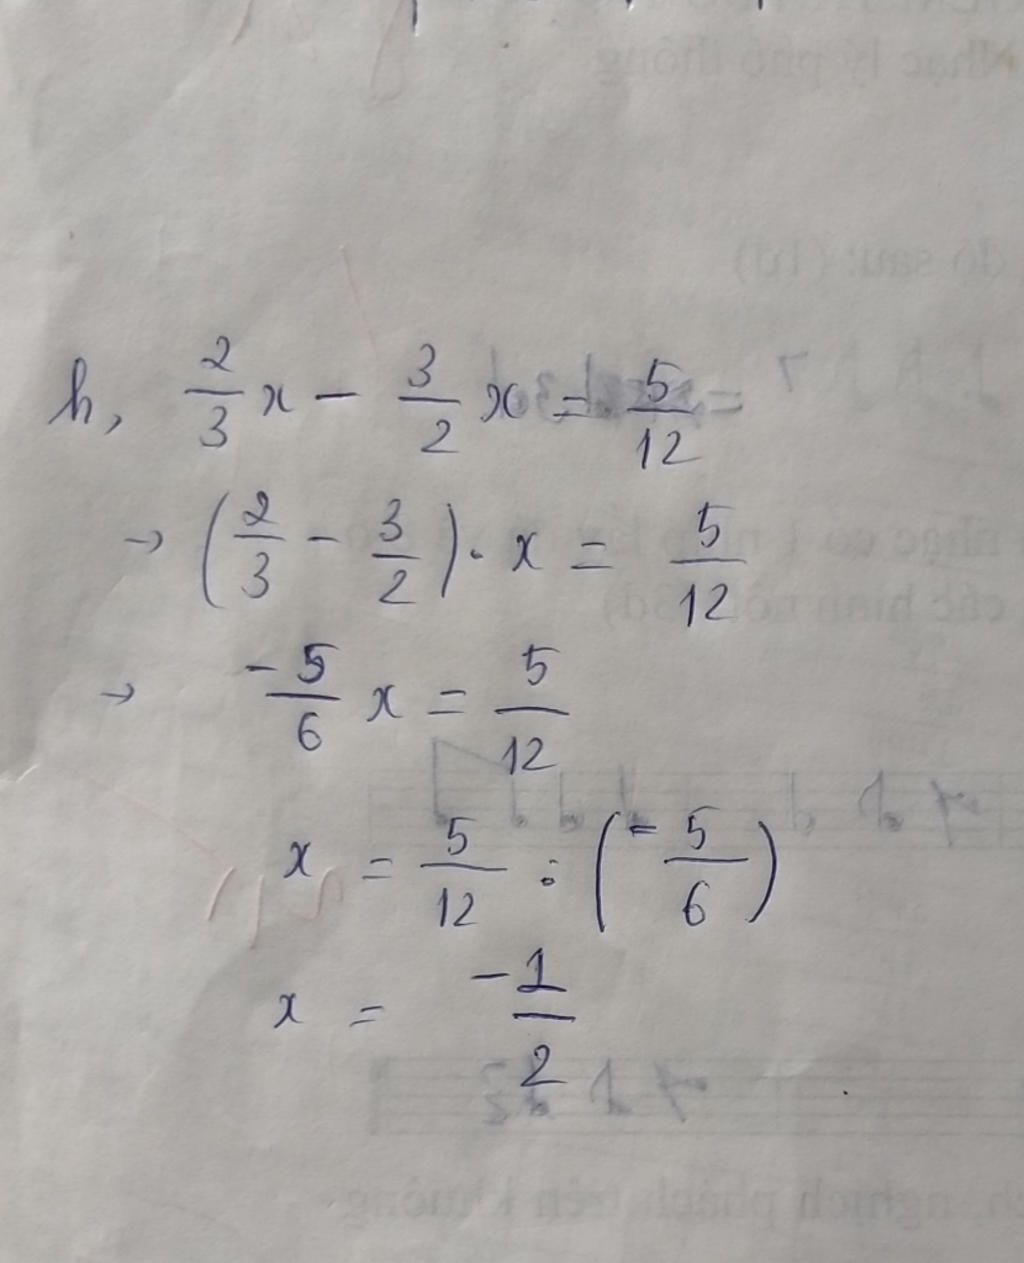 h, 2/3 x - 3/2 x = 5/12
→ (2/3 - 3/2) . x = 5/12
→ -5/6 x = 5/12
x = 5/12 : (-5/6)
x = -1/2